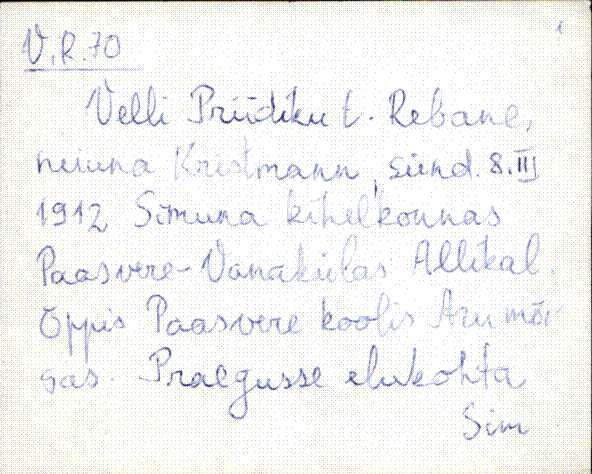 1
V.R.70
Velli Priidiku t. Rebane,
neiuna Kristmann, sünd. 8.III
1912 Simuna kihelkonnas
Paasvere-Vanakülas Allikal.
Õppis Paasvere koolis Arumõi-
sas. Praegusse elukohta
Sim